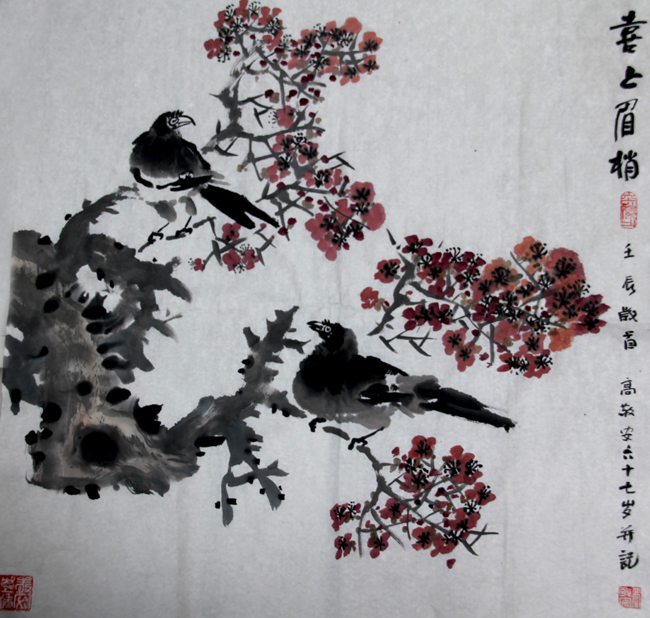 喜上眉梢
壬辰岁首 高敬安六十七岁并記